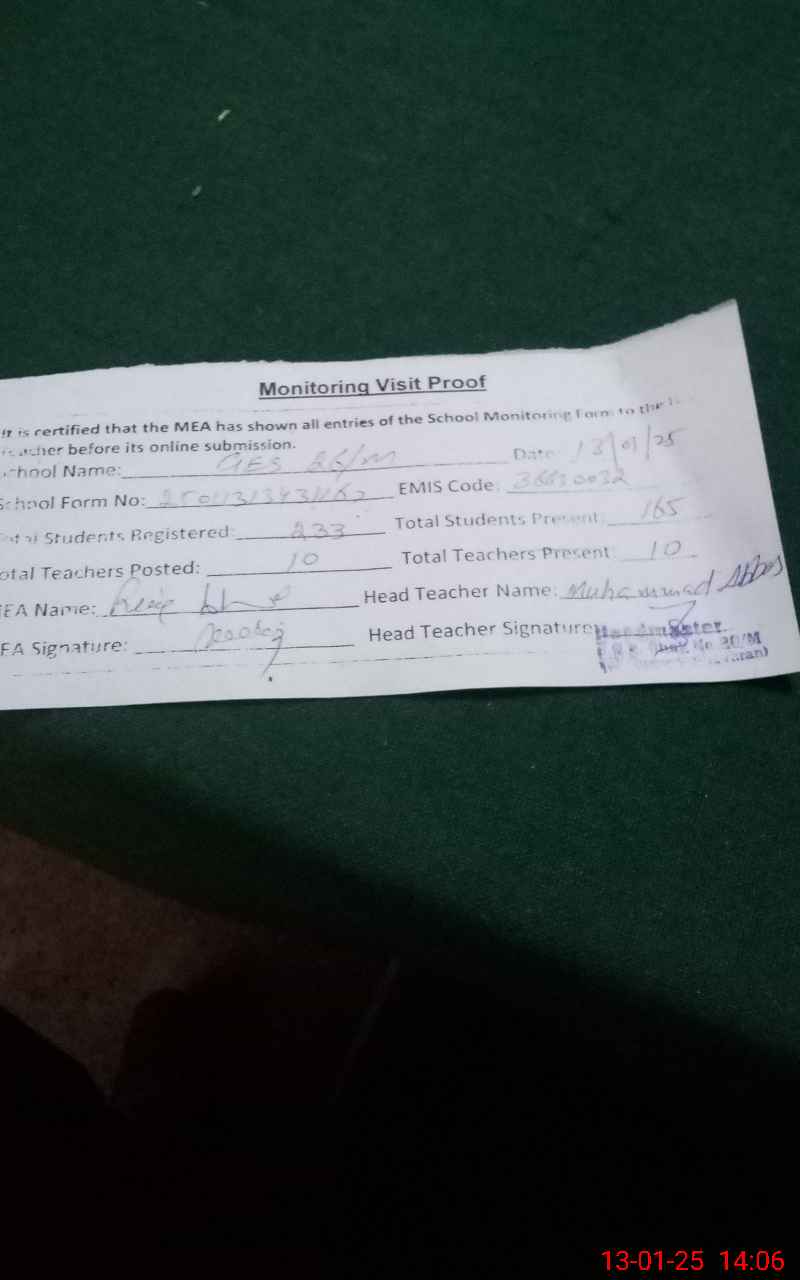 Monitoring Visit Proof
It is certified that the MEA has shown all entries of the School Monitoring Form to the
before its online submission.
School Name: GES Date: 13/01/25
School Form No: EMIS Code:
Total Students Registered: 233 Total Students Present: 165
Total Teachers Posted: 10 Total Teachers Present: 10
MEA Name: Head Teacher Name: Muhammad Abbas
MEA Signature: Head Teacher Signature:
Headmaster
No 20/M
13-01-25 14:06